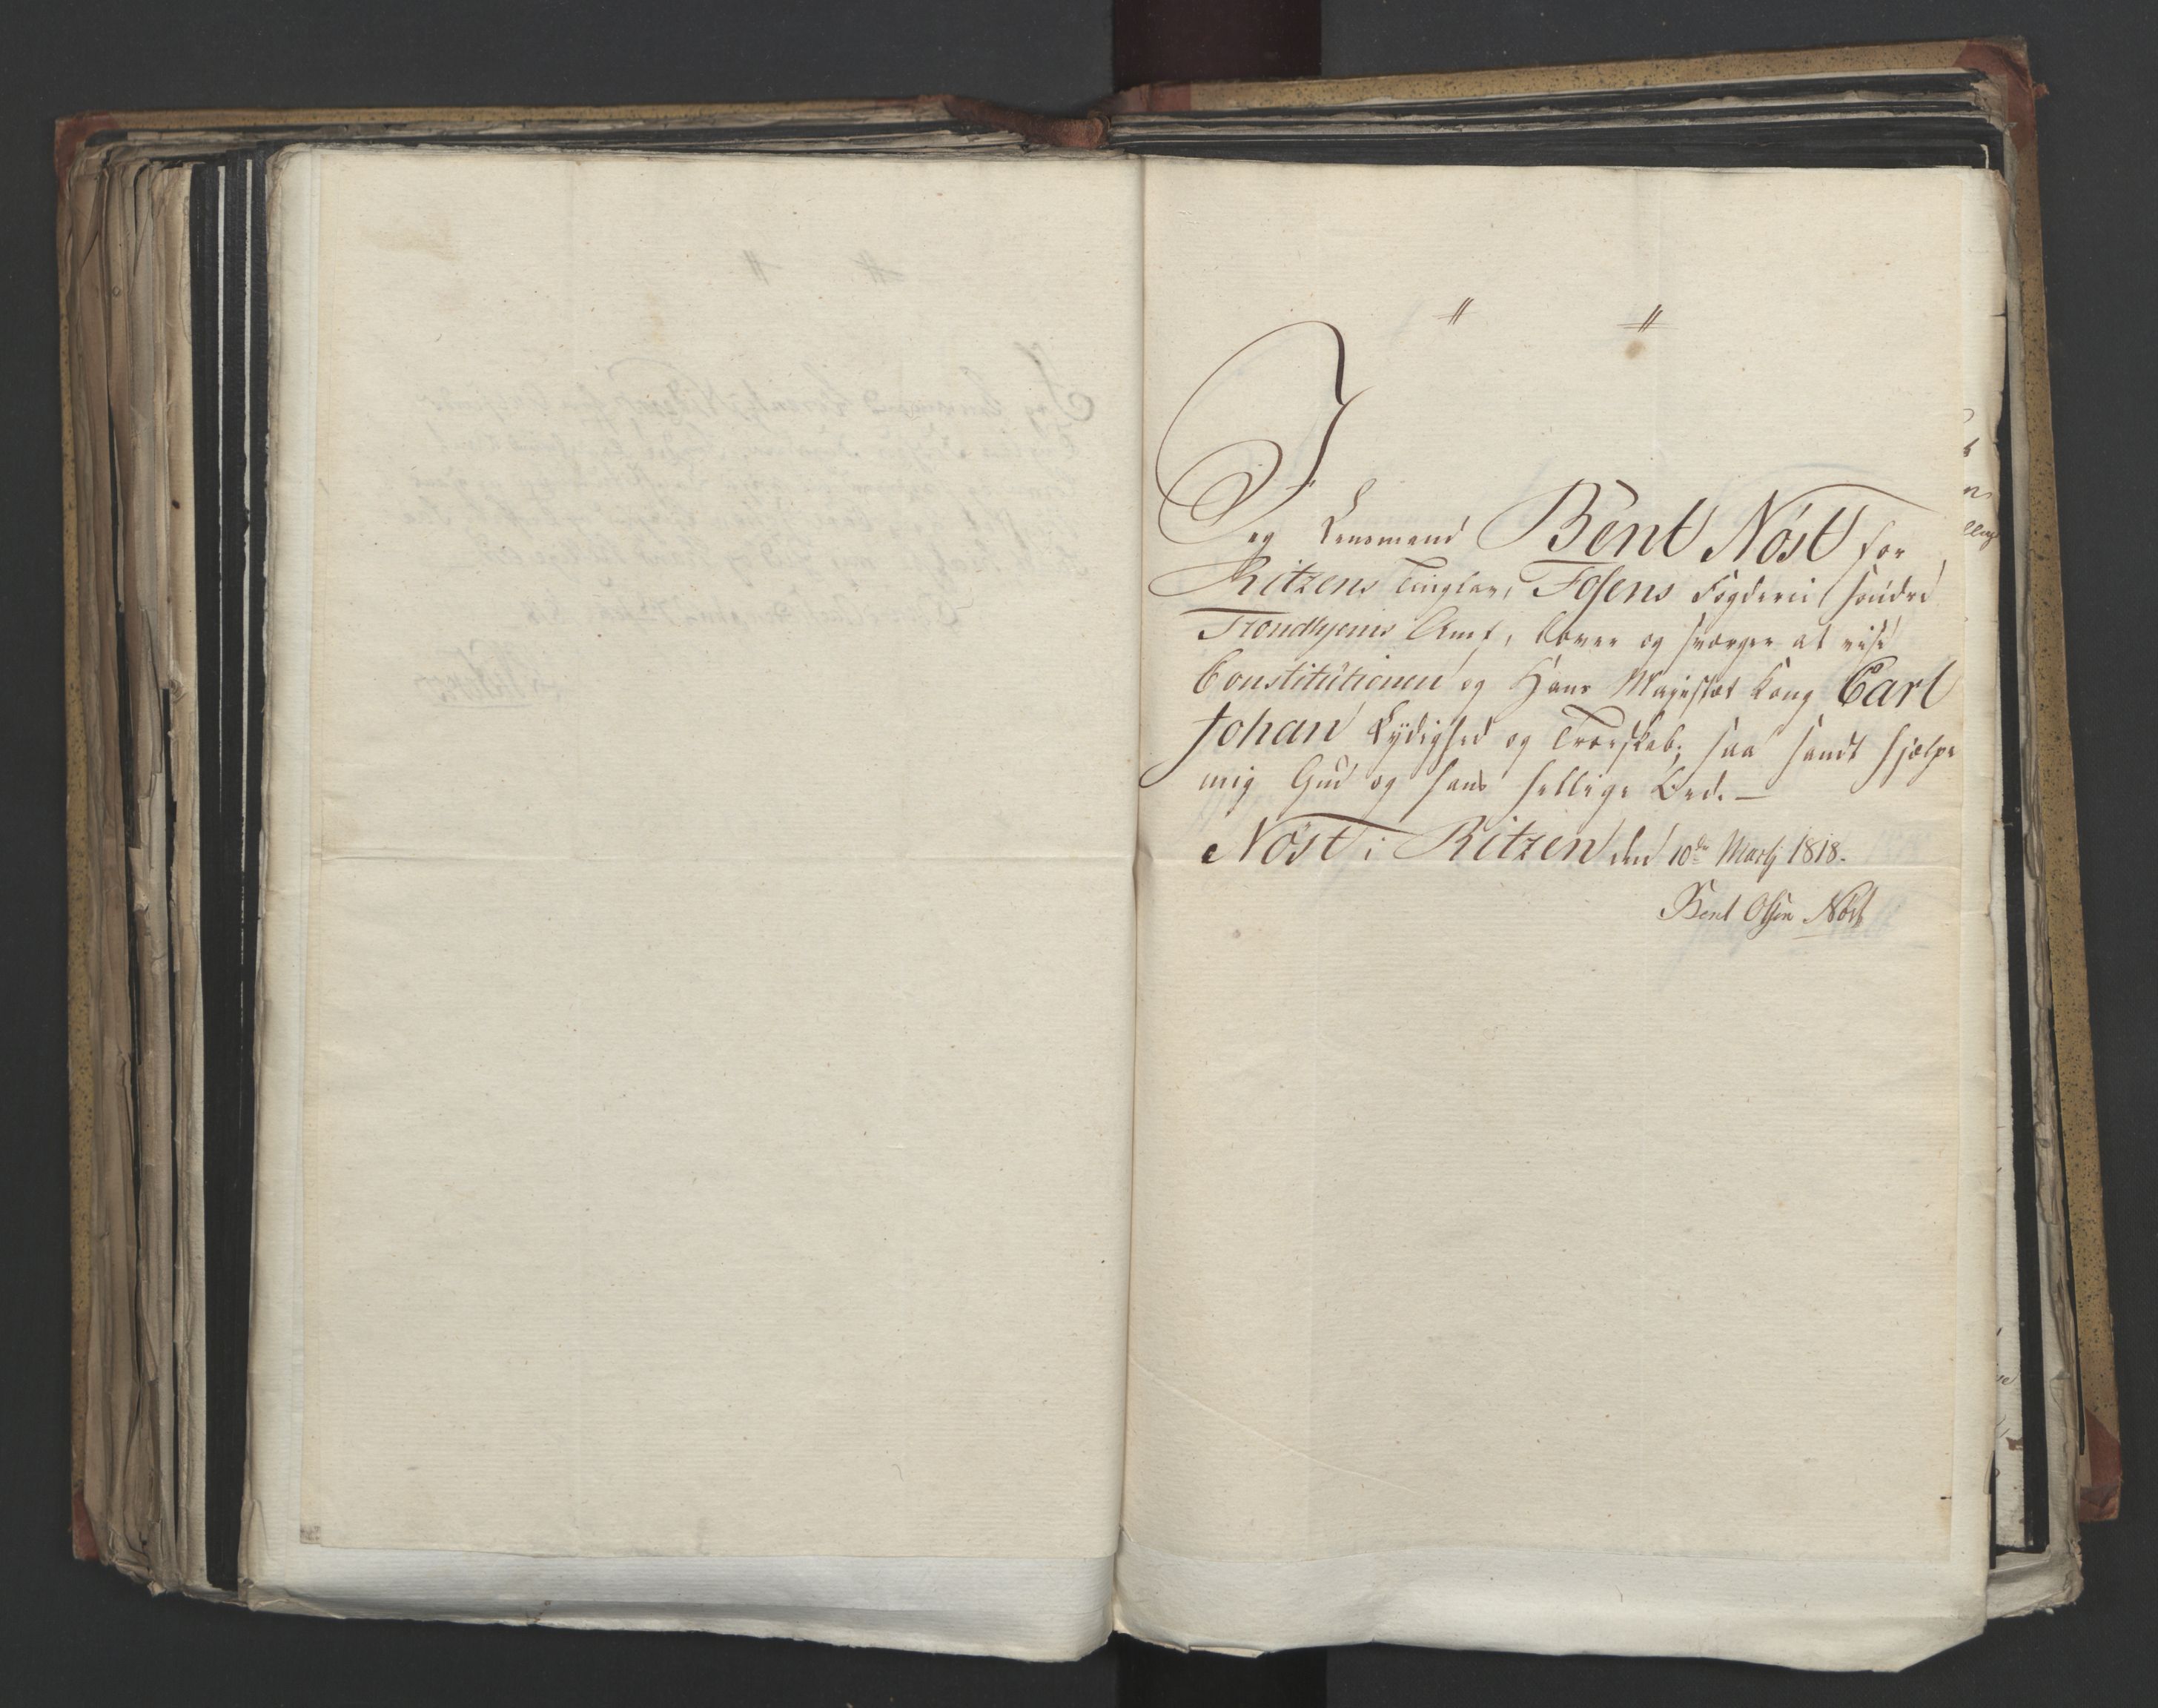 〃 〃
Jeg Lensmand Bent Nøst for
Ritzens Tinglav, Fosens Fogderie søndre
Trondhjems Amt, lover og sværger at vise
Constitutionen og Hans Majestæt Kong Carl
Johan Lydighed og Troeskab; saa sandt hjelpe
mig Gud og hans hellige Ord. —
Nøst i Ritzen den 10de Martj 1818.
Bent Olsen Nøst